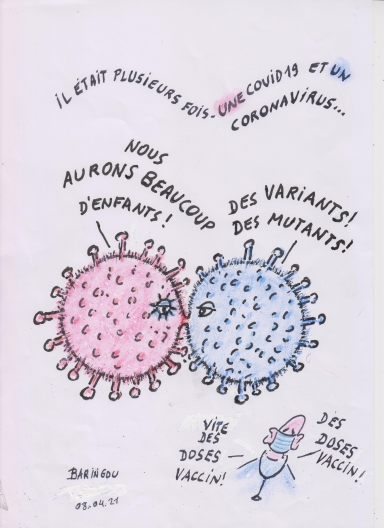 IL ÉTAIT PLUSIEURS FOIS. UNE COVID19 ET UN
CORONAVIRUS...
NOUS
AURONS BEAUCOUP
D'ENFANTS!
DES VARIANTS!
DES MUTANTS!
VITE
DES
DOSES
VACCIN!
DES
DOSES
VACCIN!
BARINGOU
08.04.21